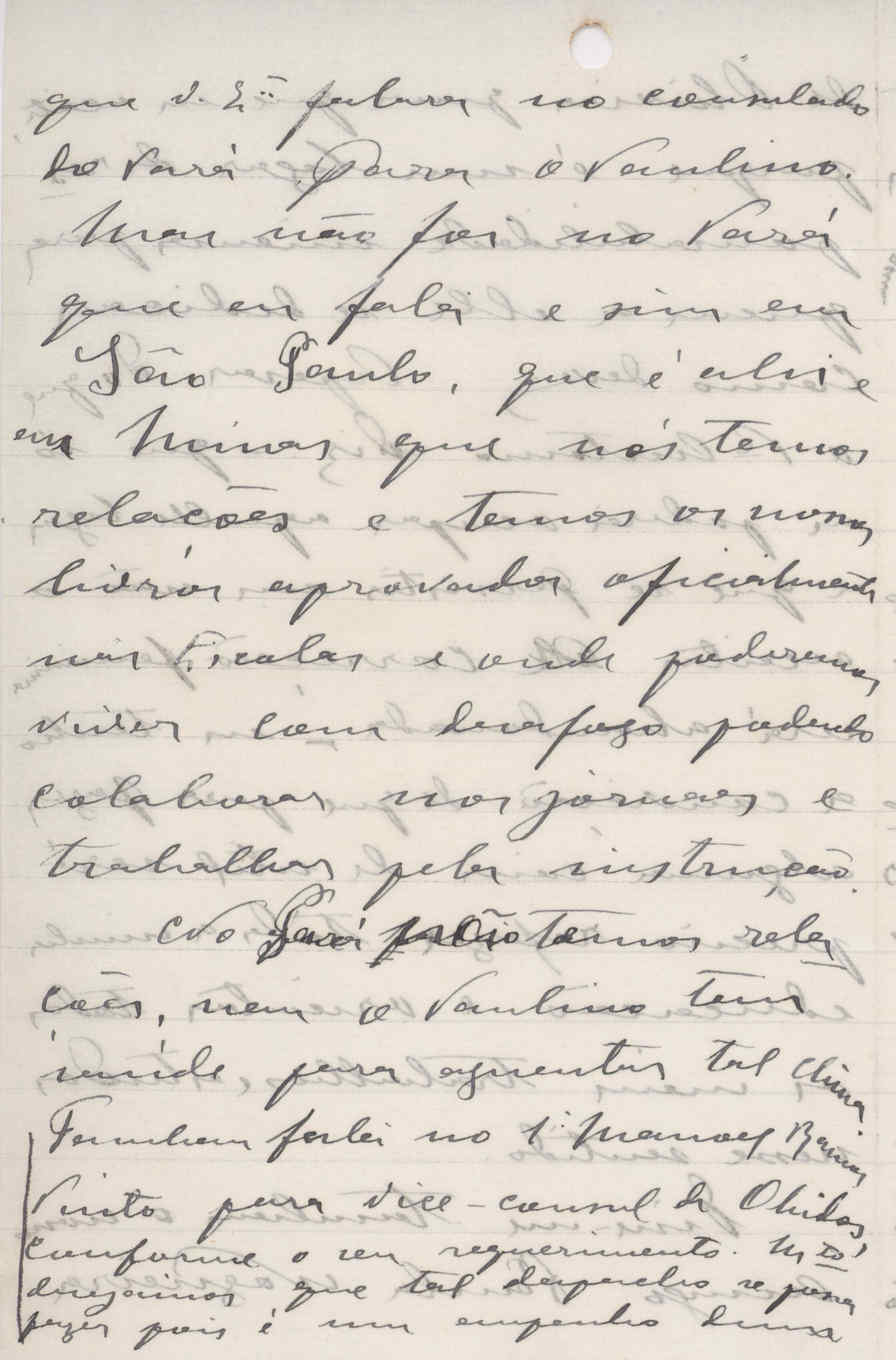 que V. Ex.ª falara no consulado
do Pará para o Paulino.
Mas não foi no Pará
que eu falei e sim em
São Paulo, que é ali e
em Minas que nós temos
relações e temos os nossos
livros aprovados oficialmente
nas Escolas e onde poderemos
viver com desafogo podendo
colaborar nos jornaes e
trabalhar pela instrução.
No Pará não temos rela
ções, nem o Paulino tem
saúde para aguentar tal clima
Tambem falei no Manoel
Pinto para vice-consul de Obidos,
conforme o seu requerimento. M.to
desejamos que tal despacho se possa
fazer pois é um empenho duma